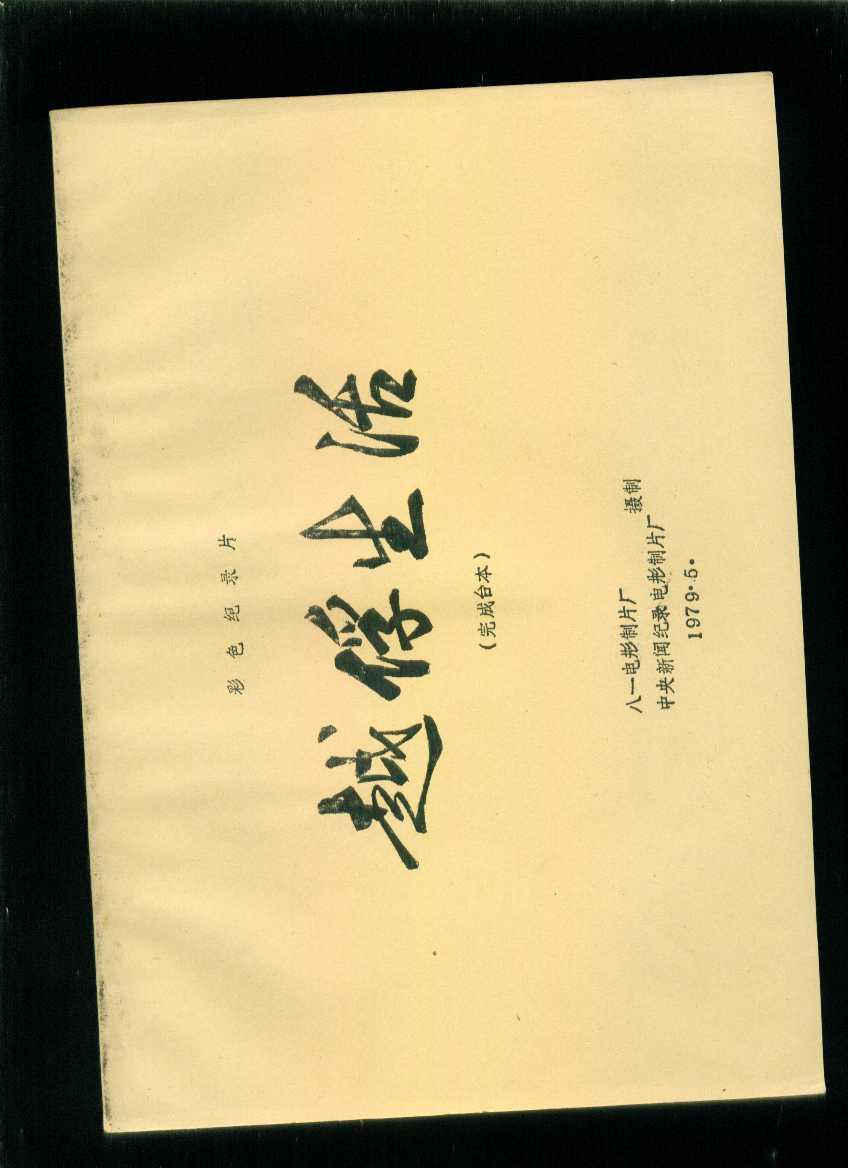 彩色纪录片
越俘生活
（完成台本）
八一电影制片厂
中央新闻纪录电影制片厂 摄制
1979.5.